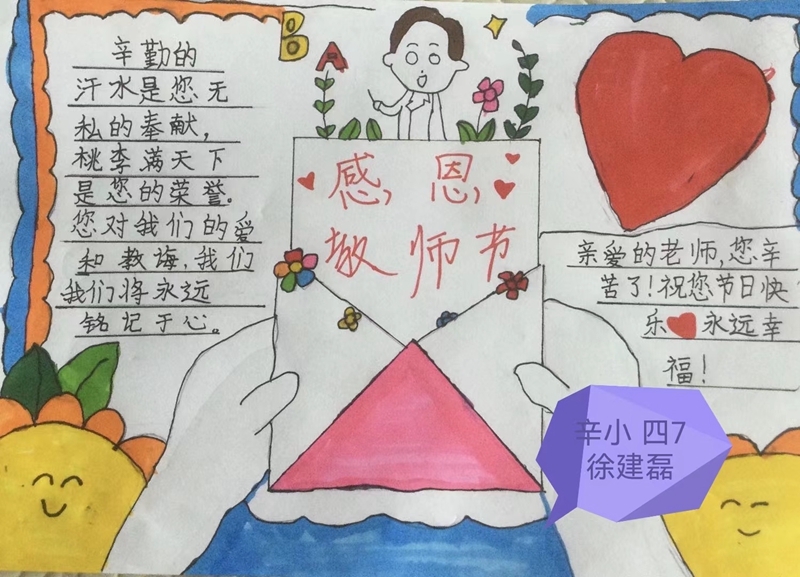 辛勤的
汗水是您无
私的奉献，
桃李满天下
是您的荣誉。
您对我们的爱
和教诲，我们
我们将永远
铭记于心。
B
A
感恩
敬师节
亲爱的老师，您辛
苦了！祝您节日快
乐永远幸
福！
辛小 四7
徐建磊